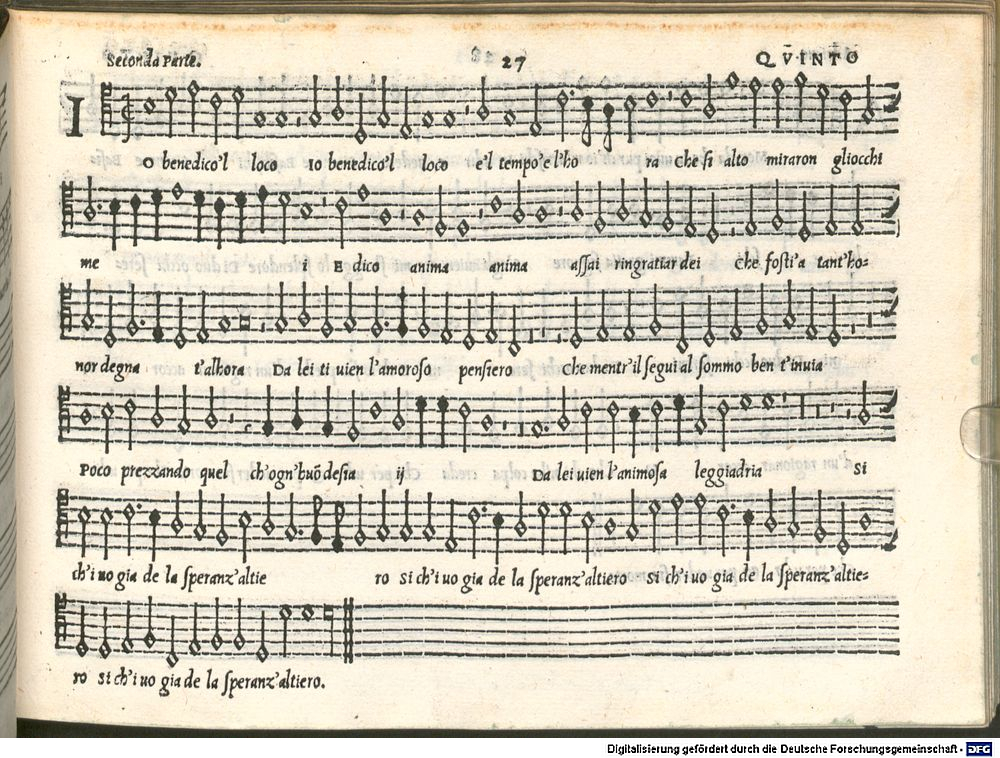 Seconda Parte. 27 QVINTO
IO benedico'l loco Io benedico'l loco e'l tempo'e l'ho ra Che si alto miraron gliocchi
me i E dico anima anima assai ringratiar dei che fosti'a tant'ho-
nor degna t'alhora Da lei ti uien l'amoroso pensiero Che mentr'il segui al sommo ben t'inuia
Poco prezzando quel ch'ogn'huõ desia ij Da lei uien l'animosa leggiadria Si
ch'i uo gia de la speranz'altie ro si ch'i uo gia de la speranz'altiero si ch'i uo gia de la speranz'altie-
ro si ch'i uo gia de la speranz'altiero.
Digitalisierung gefördert durch die Deutsche Forschungsgemeinschaft - DFG